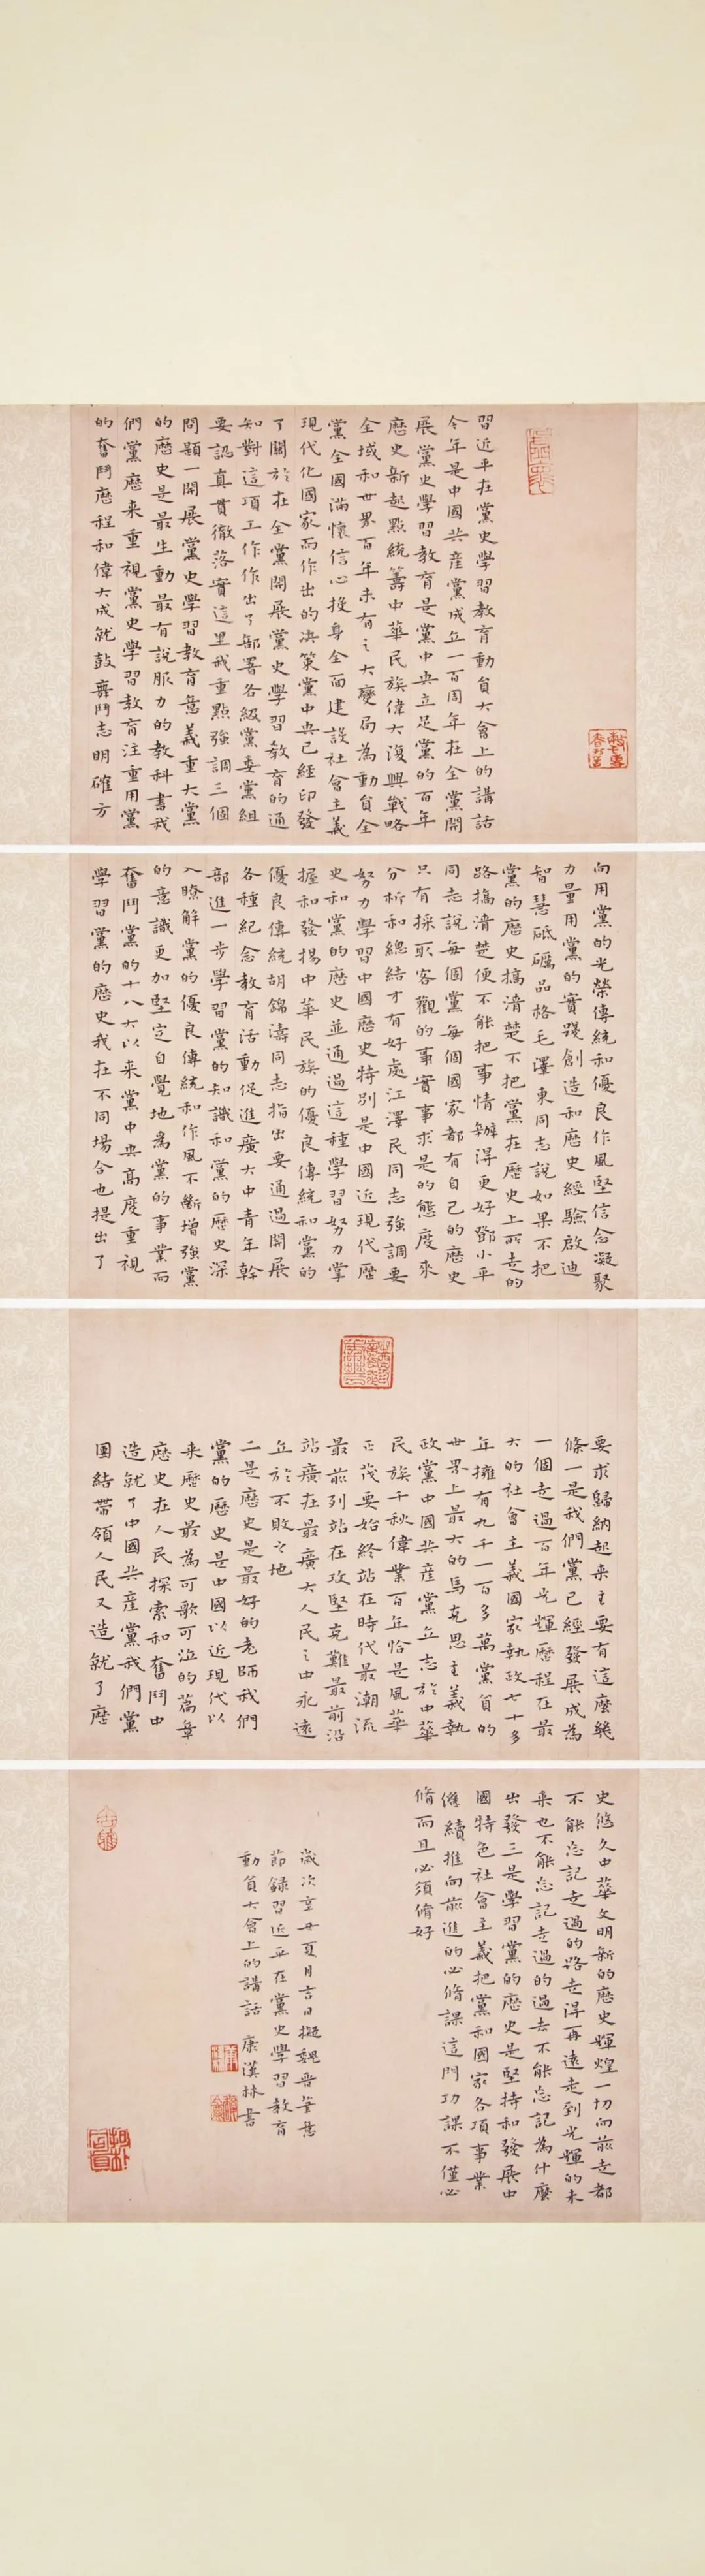 習近平在黨史學習教育動員大會上的講話
今年是中國共産黨成立一百周年在全黨開
展黨史學習教育是黨中央立足黨的百年
歷史新起點統籌中華民族偉大復興戰略
全域和世界百年未有之大變局為動員全
黨全國滿懷信心投身全面建設社會主義
現代化國家而作出的決策黨中央已經印發
了關於在全黨開展黨史學習教育的通
知對這項工作作出了部署各級黨委黨組
要認真貫徹落實這里我重點強調三個
問題一開展黨史學習教育意義重大黨
的歷史是最生動最有說服力的教科書我
們黨歷来重視黨史學習教育注重用黨
的奮鬥歷程和偉大成就鼓舞鬥志明確方
向用黨的光榮傳統和優良作風堅信念凝聚
力量用黨的實踐創造和歷史經驗啟迪
智慧砥礪品格毛澤東同志說如果不把
黨的歷史搞清楚不把黨在歷史上所走的
路搞清楚便不能把事情辦得更好鄧小平
同志說每個黨每個國家都有自己的歷史
只有採取客觀的事實事求是的態度來
分析和總結才有好處江澤民同志強調要
努力學習中國歷史特別是中國近現代歷
史和黨的歷史並通過這種學習努力掌
握和發揚中華民族的優良傳統和黨的
優良傳統胡錦濤同志指出要通過開展
各種紀念教育活動促進廣大中青年幹
部進一步學習黨的知識和黨的歷史深
入瞭解黨的優良傳統和作風不斷增強黨
的意識更加堅定自覺地為黨的事業而
奮鬥黨的十八大以来黨中央高度重視
學習黨的歷史我在不同場合也提出了
要求歸納起来主要有這麼幾
條一是我們黨已經發展成為
一個走過百年光輝歷程在最
大的社會主義國家執政七十多
年擁有九千一百多萬黨員的
世界上最大的馬克思主義執
政黨中國共産黨立志於中華
民族千秋偉業百年恰是風華
正茂要始終站在時代最潮流
最前列站在攻堅克難最前沿
站廣在最廣大人民之中永遠
立於不敗之地
二是歷史是最好的老師我們
黨的歷史是中國以近現代以
来歷史最為可歌可泣的篇章
歷史在人民探索和奮鬥中
造就了中國共産黨我們黨
團結帶領人民又造就了歷
史悠久中華文明新的歷史輝煌一切向前走都
不能忘記走過的路走得再遠走到光輝的未
来也不能忘記走過的過去不能忘記為什麼
出發三是學習黨的歷史是堅持和發展中
國特色社會主義把黨和國家各項事業
繼續推向前進的必脩課這門功課不僅必
脩而且必須脩好
歲次辛丑夏月吉日擬魏晋筆意
節録習近平在黨史學習教育
動員大會上的講話 康漢林書